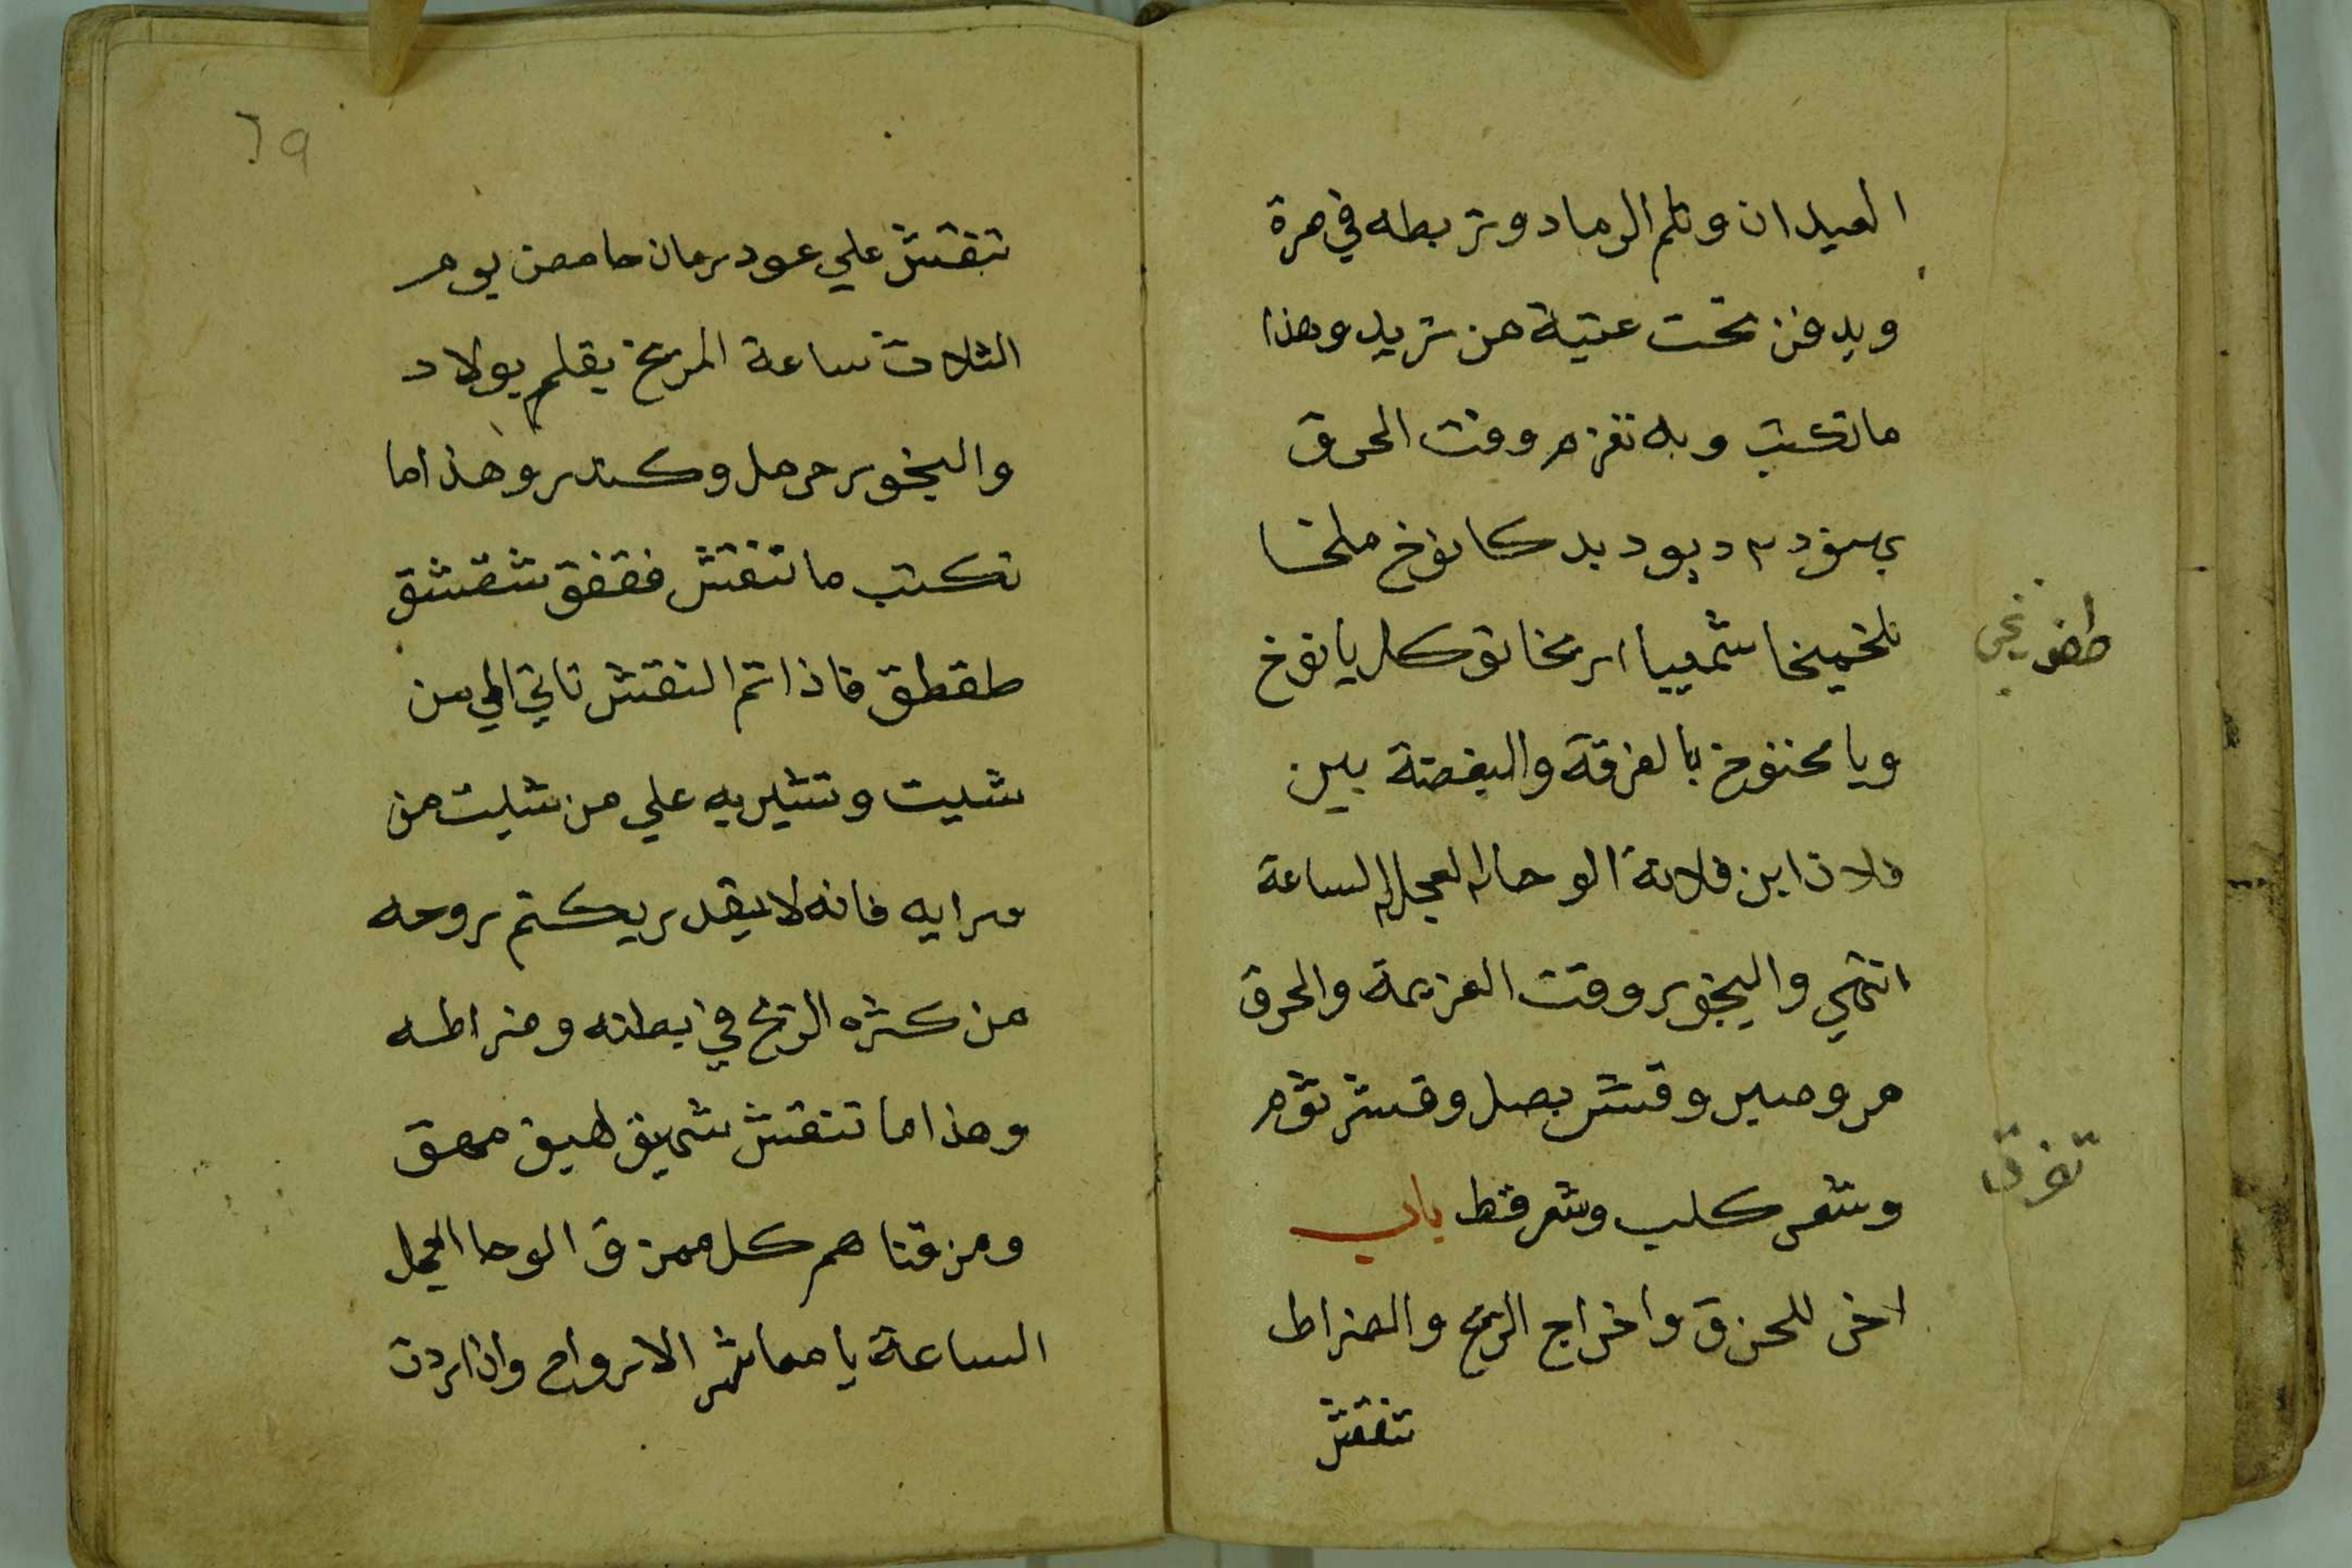 العيدان وتلم الرماد وتربطه في صرة
ويدفن تحت عتبة من تريد وهذا
ما تكتب وبه تعزم وقت الحرق
ديود بد كانوخ ملخا
شمعيا توكل يا نوخ
ويا محنوخ بالفرقة والبغضة بين
فلان ابن فلانة الوحا العجل الساعة
انتهي والبخور وقت العزيمة والحرق
مر وصبر وقشر بصل وقشر ثوم
وشعر كلب وشعر قط باب
اخر للحزق واخراج الريح والضراط
تنقش
تفرق
٦٩
تنقش علي عود رمان حامض يوم
الثلاث ساعة المريخ بقلم بولاد
والبخور حرمل وكندر وهذا ما
تكتب ما تنقش فقفق شقشق
طقطق فاذا تم النقش تاتي الي من
شيت وتشير به علي من شيت من
مرايه فانه لا يقدر يكتم روحه
من كثره الريح في بطنه وضراطه
وهذا ما تنقش شهيق لهيق مهق
ومزقناهم كل ممزق الوحا العجل
الساعة يا معاشر الارواح وان اردت